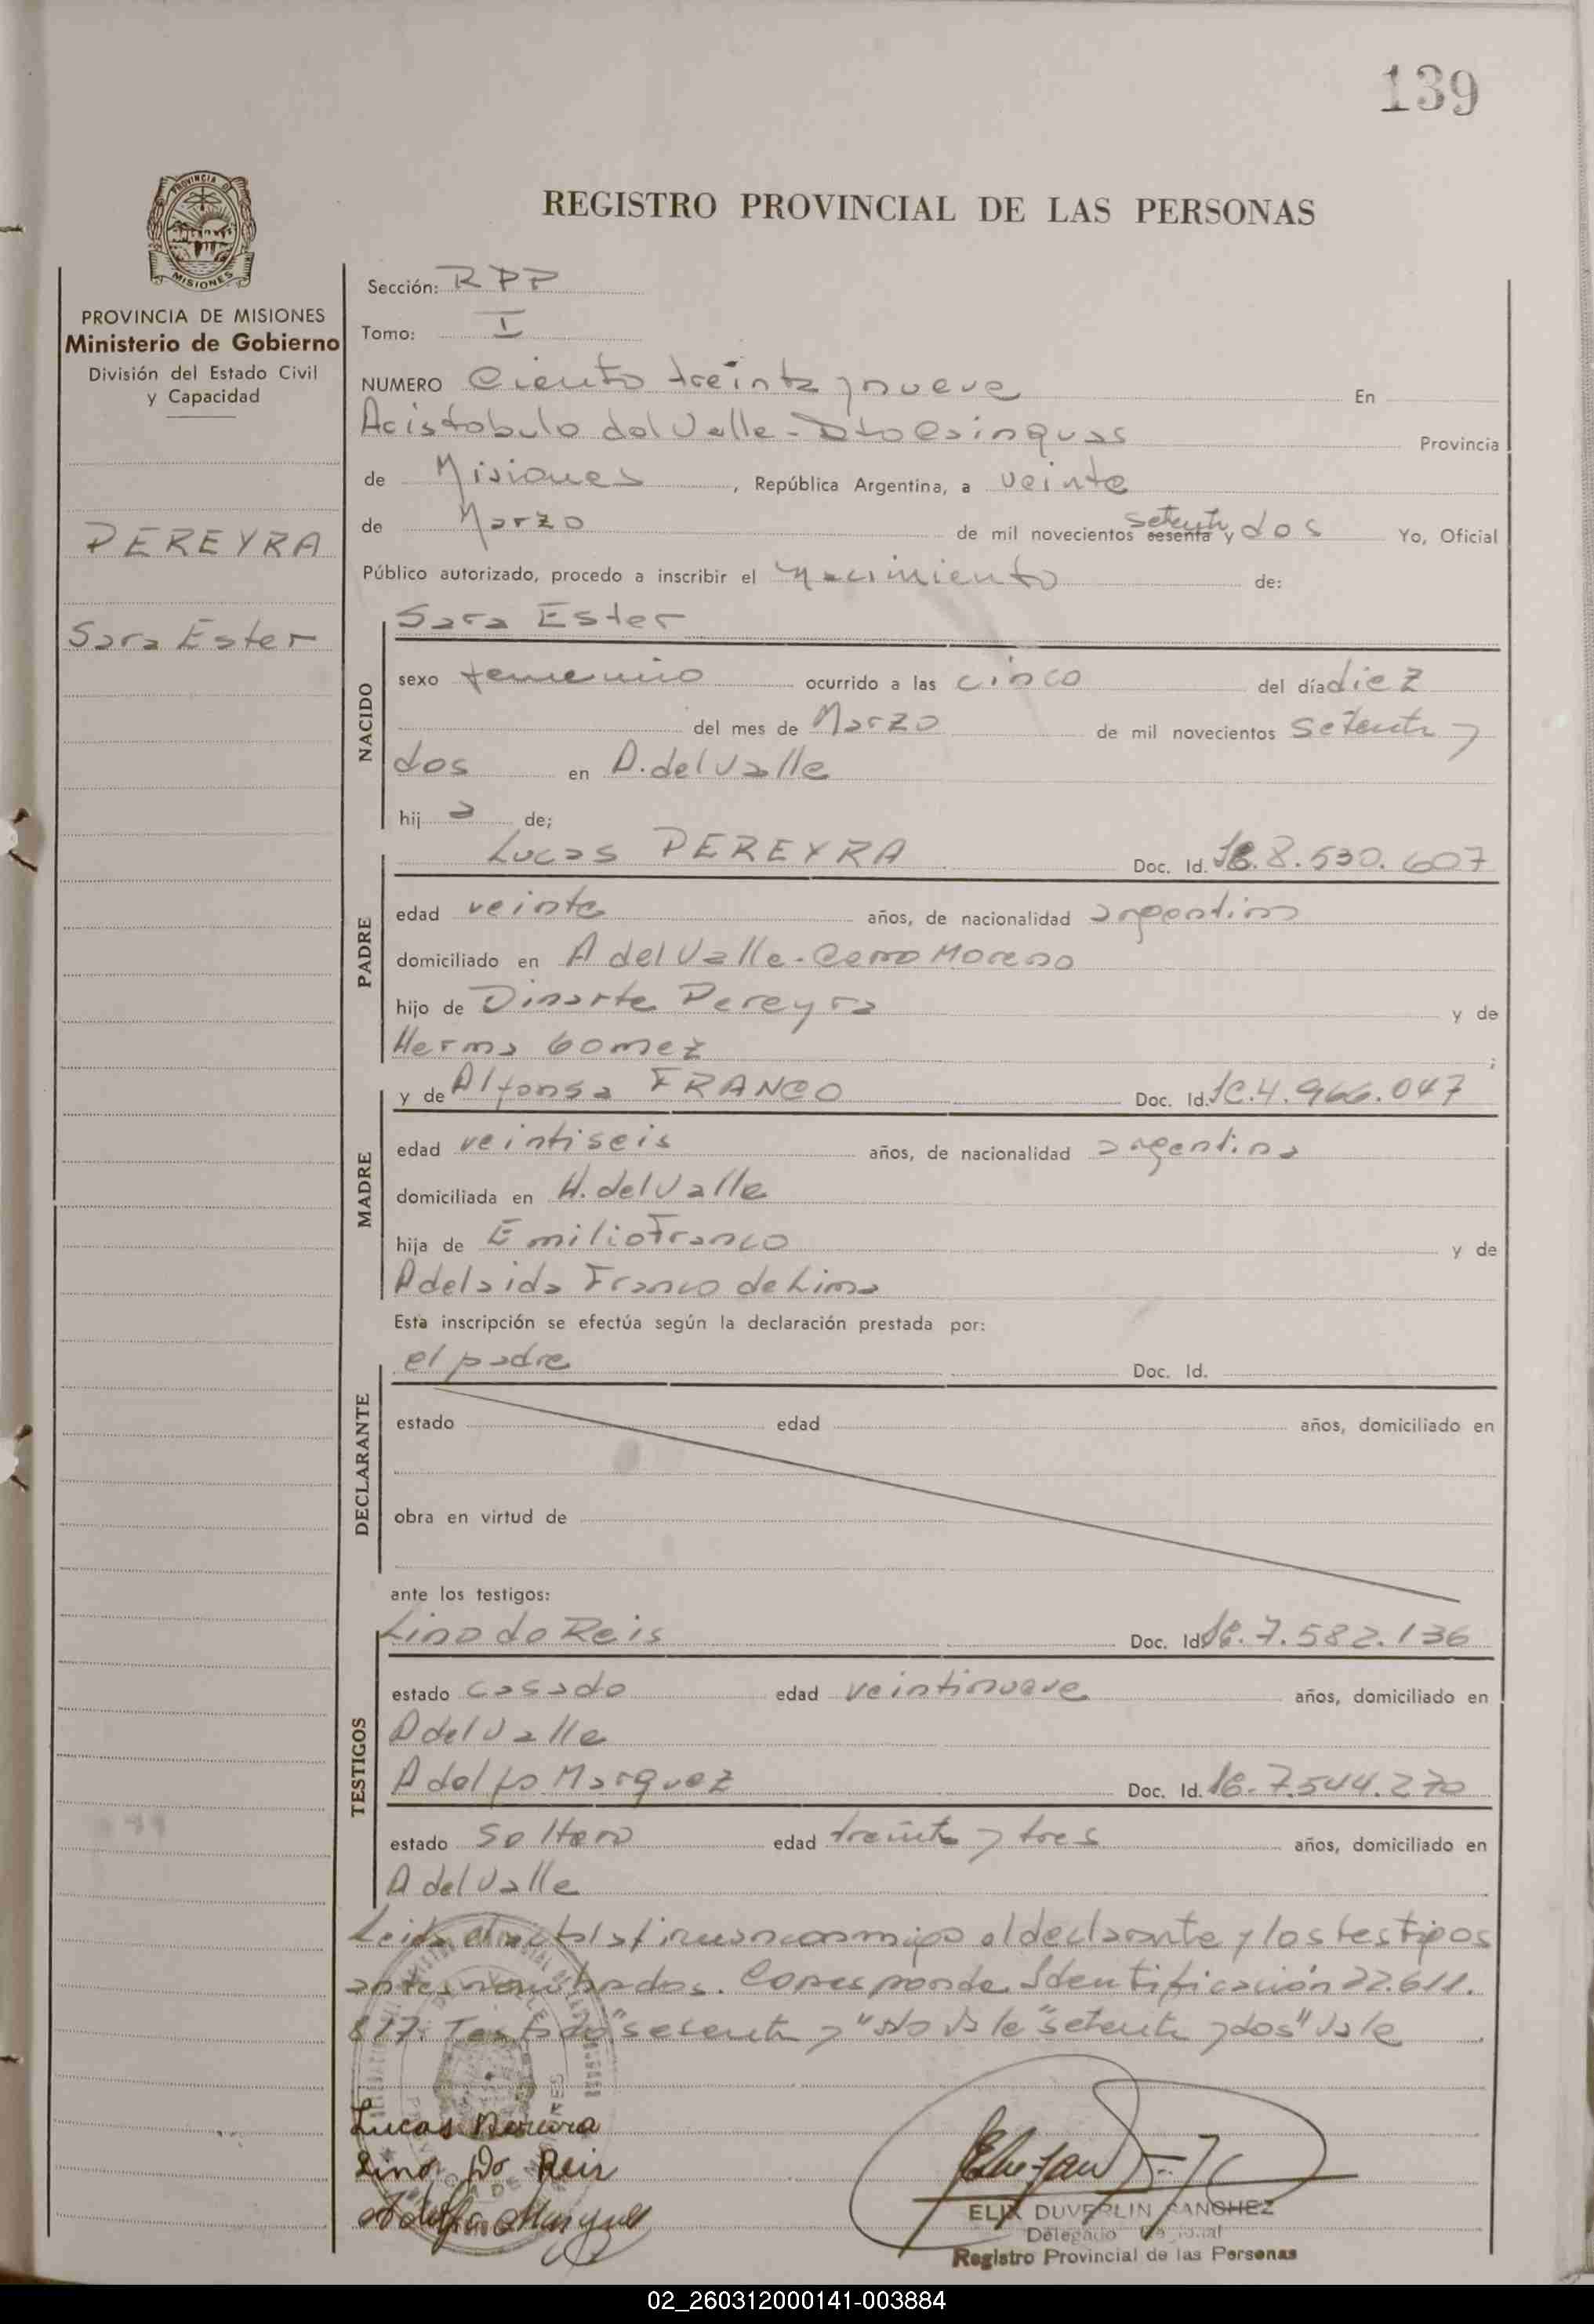 139
PROVINCIA DE
MISIONES
REGISTRO PROVINCIAL DE LAS PERSONAS
PROVINCIA DE MISIONES
Ministerio de Gobierno
División del Estado Civil
y Capacidad
PEREYRA
Sara Ester
Sección: RPP
Tomo: I
NUMERO Ciento treinta y nueve En
Aristobulo del Valle - Dto Cainguas Provincia
de Misiones, República Argentina, a veinte
de Marzo de mil novecientos sesenta setenta y dos Yo, Oficial
Público autorizado, procedo a inscribir el nacimiento de:
NACIDO
Sara Ester
sexo femenino ocurrido a las cinco del día diez
del mes de Marzo de mil novecientos setenta y
dos en A. del Valle
hij a de;
PADRE
Lucas PEREYRA Doc. Id. 8.530.607
edad veinte años, de nacionalidad argentino
domiciliado en A del Valle - Cerro Moreno
hijo de Dinarte Pereyra y de
Herma Gomez ;
MADRE
y de Alfonsa FRANCO Doc. Id. IC. 4.966.047
edad veintiseis años, de nacionalidad argentina
domiciliada en A. del Valle
hija de Emilio Franco y de
Adelaida Franco de Lima
Esta inscripción se efectúa según la declaración prestada por:
DECLARANTE
el padre Doc. Id.
estado edad años, domiciliado en
obra en virtud de
ante los testigos:
TESTIGOS
Lino do Reis Doc. Id. 7.582.136
estado casado edad veintinueve años, domiciliado en
A del Valle
Adolfo Marquez Doc. Id. 7.544.270
estado soltero edad treinta y tres años, domiciliado en
A del Valle
Leida el acta la firman conmigo el declarante y los testigos
antes nombrados. Corresponde Identificación 22.611.
817. Testado "sesenta y" no vale "setenta y dos" vale
Lucas Pereira
Lino Do Reis
Adolfo Marquez
ELIX DUVERLIN SANCHEZ
Delegado
Registro Provincial de las Personas
02_260312000141-003884